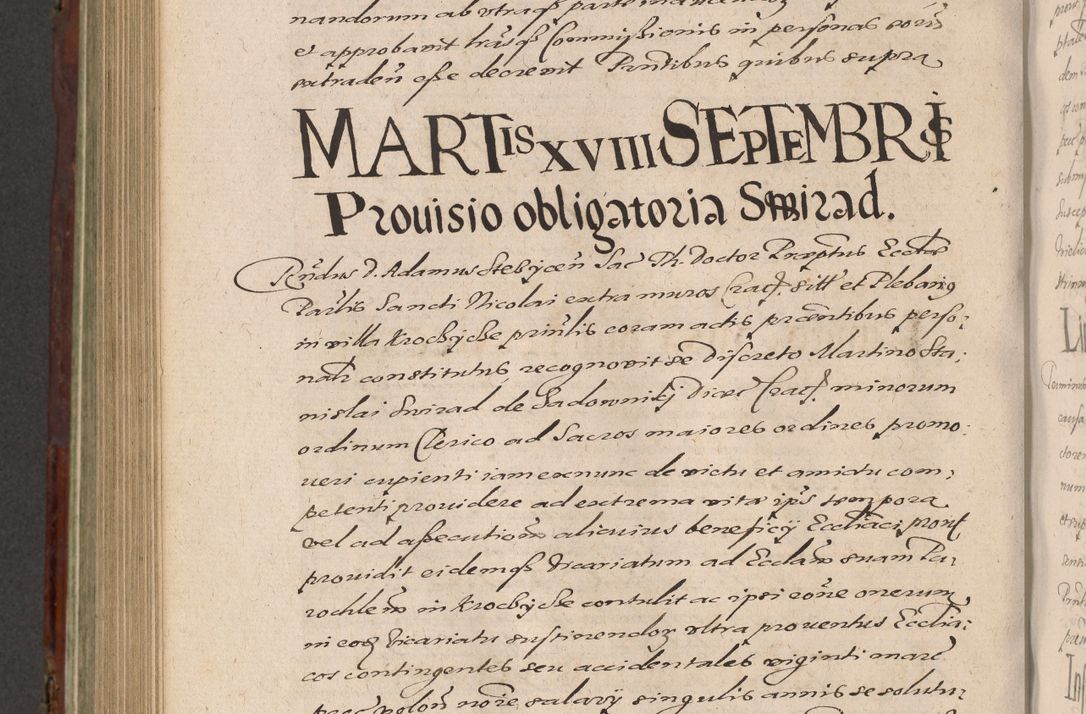 nandorum ab utraq̃ parte
et approbavit l̃rasq̃ Commissionis in personas eorũ
extradeñ esse decrevit Pr̃ntibus quibus supra
MARTIS XVIII SEPTEMBRIS
Prouisio obligatoria Swirad.
Rñdus D. Adamus Stebycen̄ Sac Th. Doctor Præptus Ecctæ
Par̃lis Sancti Nicolai extra muros Crac̃. Sitt̃ et Plebanus
in villa Krocbyche prin̄lis coram actis præsentibus perso-
nalr̃ constitutus recognovit se Discreto Martino Sta-
nislai Swirad de Sadownikj Dioec̃ Crac̃. minorum
ordinum Clerico ad Sacros maiores ordines promo-
ueri cupienti iam ex nunc de victu et amictu com-
petenti providere ad extrema vitæ ip̃s tempora
vel ad assecutionẽ alicuius beneficij Eccl̃iaci prout
prouidit eidemq̃ Vicariatum ad Eccl̃am suam Pa-
rochlem̃ in Krocbyche contulit ac ipsi rõne onerum
in eoq̃ Vicariatu sustinendoꝝ ultra prouentus Ecclia-
cos contingentes seu accidentales viginti marc̃
pec̃ polõn nõre salarij singulis annis se solutu-